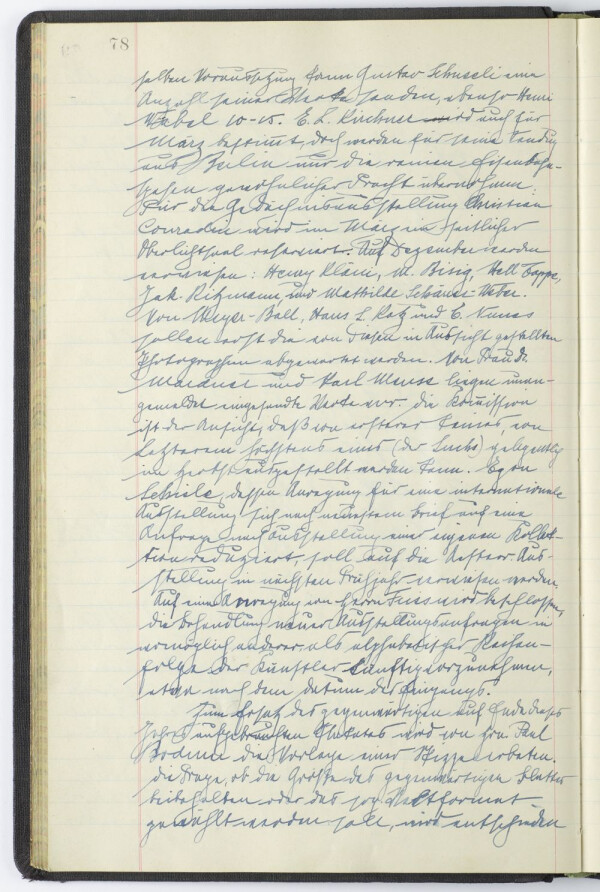 78
selben Voraussetzung kann Gustav Schneeli eine
Anzahl seiner Werke senden, ebenso Henri
Wabel 10-15. E. L. Kirchner wird auch für
März bestimmt, doch werden für seine Sendung
aus Berlin nur die reinen Eisenbahn-
spesen gewöhnlicher Fracht übernommen.
Für die Gedächtnisausstellung Christian
Conradin wird im März ein seitlicher
Oberlichtsaal reserviert. Auf Dezember werden
verwiesen: Henry Klein, W.
Jak. Ritzmann und Mathilde
Von Weyer-Balt, Hans L. Katz und E.
sollen erst die von diesen in Aussicht gestellten
Photographien abgewartet werden. Von Traudi
und Karl Mense liegen unan-
gemeldet eingesandte Werke vor. Die Kommission
ist der Ansicht, daß von ersterer keines, von
Letzterem höchstens eines (der Fuchs) gelegentlich
im Herbst ausgestellt werden kann. Egon
Schiele, dessen Anregung für eine internationale
Ausstellung sich nach neuestem Brief auf eine
Anfrage nach Ausstellung einer eigenen Kollek-
tion reduziert, soll auf die Aus-
stellung im nächsten Frühjahr verwiesen werden.
Auf eine Anregung von Herrn wird beschlossen,
die Behandlung neuer Ausstellungsanfragen in
womöglich anderer als alphabetischer Reihen-
folge der Künstler künftig vorzunehmen,
etwa nach dem Datum des Eingangs.
Zum Ersatz des gegenwärtigen auf Ende dieses
Jahres aufgebrauchten Plakates wird von Hrn. Paul
Bodmer die Vorlage einer Skizze erbeten.
Die Frage, ob die Größe des gegenwärtigen Blattes
beibehalten oder das sog. Weltformat
gewählt werden soll, wird entschieden